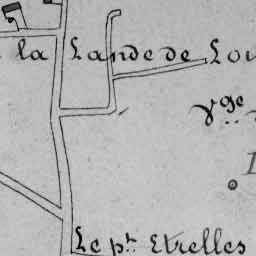 la Lande de Lou
Vge
Le pt. Etrelles